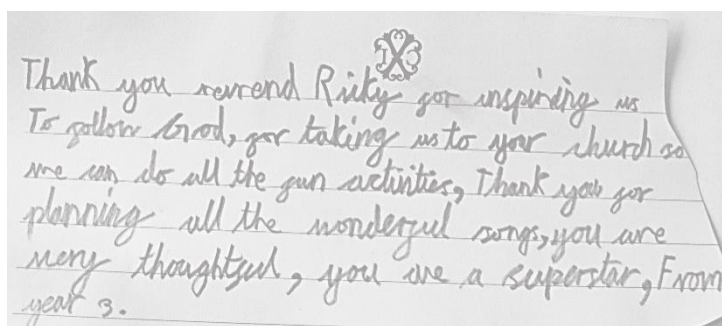 Thank you revrend Ricky for inspireing us
To follow God, for taking us to your church so
we can do all the fun activities, Thank you for
planning all the wonderful songs, you are
very thoughtful, you are a superstar, From
year 3.